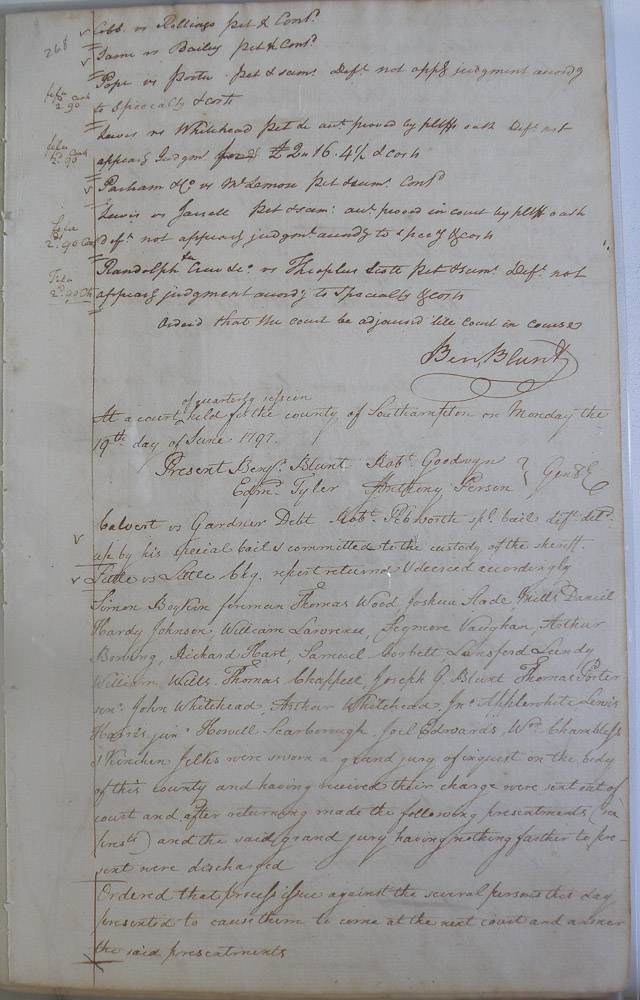 268
Cobb vs Rollings Pet & Cont.d
Same vs Bailey Pet & Cont.d
Pope vs Porter Pet & sum.s Def.t not appg judgment accordg
to Specialty & costs
Lewis vs Whitehead Pet &c acct proved by pltffs oath Def.t not
appearg Judgm.t for £2.16.4½ & costs
Parham &Co vs McLemore Pet & sum.s Cont.d
Lewis vs Jarrell Pet & sum.s acct proved in court by pltffs oath
Def.t not appearg judgmt accordg to specy & costs
Randolph &c vs Theoplus Scott Pet & sum.s Def.t not
appearg judgment accordg to Specialty & costs
Ordered that the court be adjourned till Court in course
Ben Blunt
At a court of quarterly session held for the county of Southampton on Monday the
19th day of June 1797.
Present Benj.n Blunt Rob.t Goodwyn
Edm.d Tyler Anthony Person } Gent
Calvert vs Gardner Debt Rob.t Pebworth spl. bail def.t del.d
up by his special bail & committed to the custody of the sheriff.
vs Chy. report returned & decreed accordingly
Simon Boykin foreman Thomas Wood, Joshua Slade, Mills Daniel
Hardy Johnson, William Lawrence, Seymore Vaughan, Arthur
Bowing, Richard Hart, Samuel Corbett Lunsford Lundy
William Wills. Thomas Chappell, Joseph G. Blunt Thomas Porter
sen.r John Whitehead, Arthur Whitehead, Jn.o Applewhite Lewis
Harris jun.r Howell Scarborough, Joel Edwards, W.m Chambless
& Kinchen Jelks were sworn a grand jury of inquest on the body
of this county and having received their charge were sent out of
court and after returning made the following presentments (
) and the said grand jury having nothing farther to pre-
sent were discharged
Ordered that process issue against the several persons this day
presented to cause them to come at the next court and answer
the said presentments